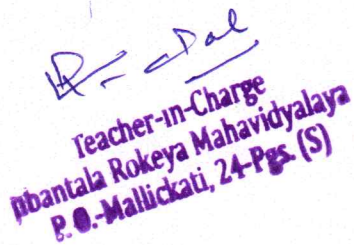 Teacher-in-Charge
Rokeya Mahavidyalaya
P. O.-Mallickati, 24-Pgs. (S)